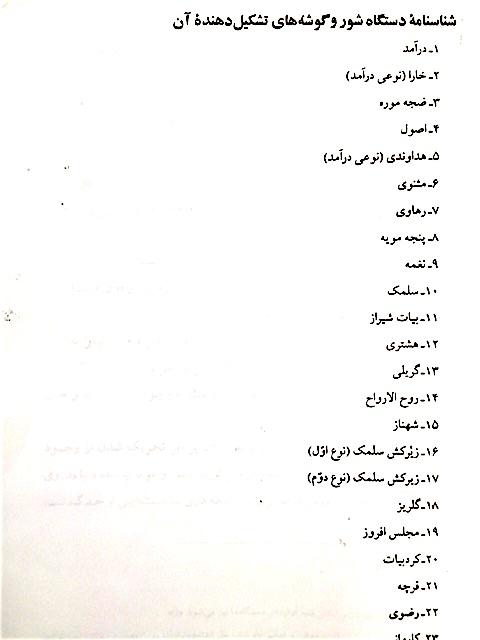 شناسنامهٔ دستگاه شور و گوشه‌های تشکیل‌دهندهٔ آن
۱ـ درآمد
۲ـ خارا (نوعی درآمد)
۳ـ ضجه موره
۴ـ اصول
۵ـ هداوندی (نوعی درآمد)
۶ـ مثنوی
۷ـ رهاوی
۸ـ پنجه مویه
۹ـ نغمه
۱۰ـ سلمک
۱۱ـ بیات شیراز
۱۲ـ هشتری
۱۳ـ گریلی
۱۴ـ روح الارواح
۱۵ـ شهناز
۱۶ـ زیرکش سلمک (نوع اوّل)
۱۷ـ زیرکش سلمک (نوع دوّم)
۱۸ـ گلریز
۱۹ـ مجلس افروز
۲۰ـ کردبیات
۲۱ـ قرچه
۲۲ـ رضوی